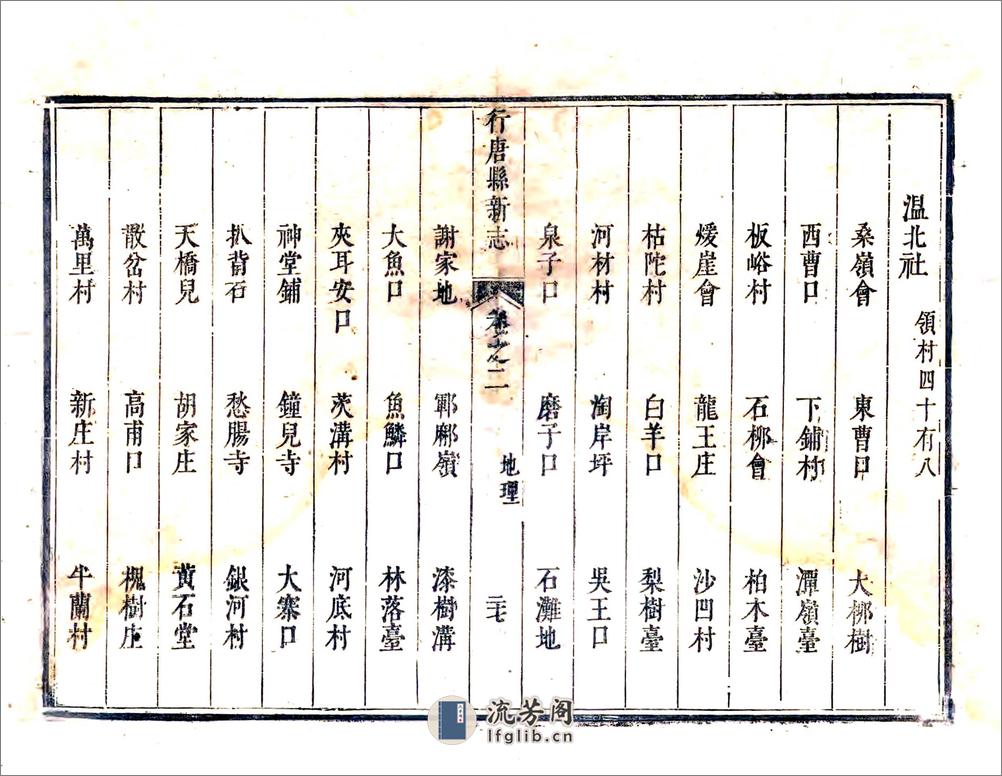 温北社 領村四十有八
桑嶺會 東曹口 大栁樹
西曹口 下鋪村 潭嶺臺
板峪村 石栁會 柏木臺
煖崖會 龍王庄 沙凹村
枯陀村 白羊口 梨樹臺
河材村 淘岸坪 吳王口
泉子口 磨子口 石灘地
行唐縣新志 卷之二 地理 二七
謝家地 鄢郙嶺 漆樹溝
大魚口 魚鱗口 林落臺
夾耳安口 茨溝村 河底村
神堂鋪 鐘兒寺 大寨口
扒背石 愁腸寺 銀河村
天橋兒 胡家庄 黄石堂
散岔村 高甫口 槐樹庄
萬里村 新庄村 牛蘭村
流芳阁
lfglib.cn